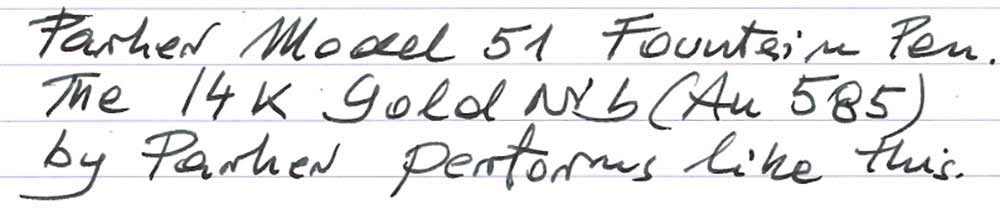 Parker Model 51 Fountain Pen.
The 14K Gold Nib (Au 585)
by Parker performs like this.